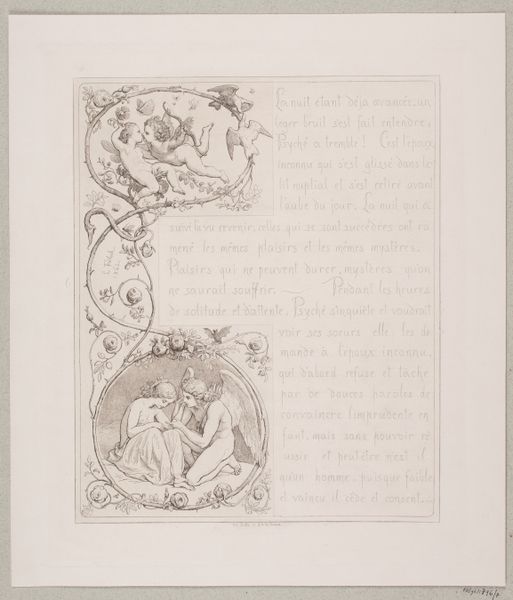 La nuit étant déja avancée, un
leger bruit s'est fait entendre.
Psyché a tremblé! C'est l'époux
inconnu qui s'est glissé dans le
lit nuptial et s'est retiré avant
l'aube du jour. La nuit qui a
suivi l'a vu revenir, celles qui se sont succédées ont ra
mené les mêmes plaisirs et les mêmes mystères.
Plaisirs qui ne peuvent durer, mystères qu'on
ne saurait souffrir. — Pendant les heures
de solitude et d'attente, Psyché s'inquiète et voudrait
voir ses sœurs elle les de
mande à l'époux inconnu,
qui d'abord refuse et tâche
par de douces paroles de
convaincre l'imprudente en
fant, mais sans pouvoir ré
ussir et peut être n'est il
qu'un homme, puisque faible
et vaincu il cède et consent.